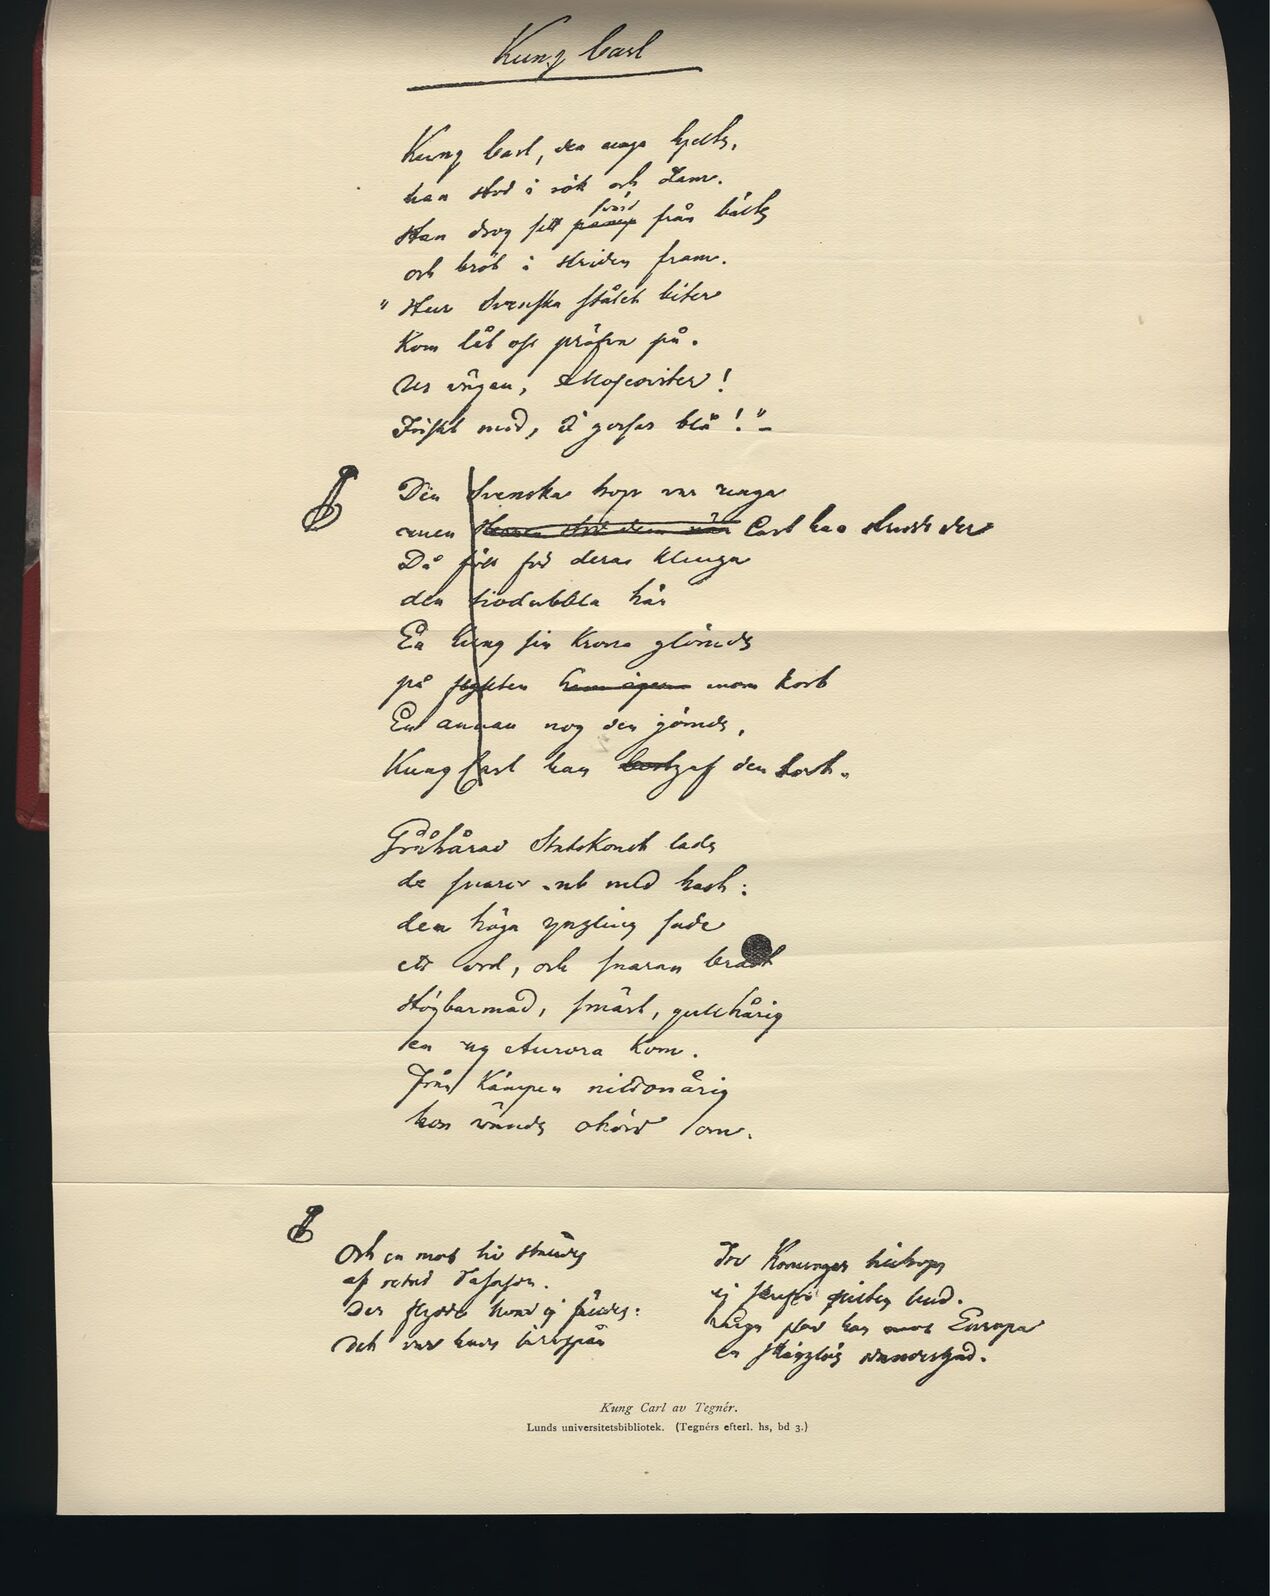 Kung Carl
Kung Carl, den unga hjelte,
han stod i rök och dam.
Han drog sitt svärd från bälte
och bröt i striden fram.
"Hur Svenska stålet biter
Kom låt oss pröfva på.
Ur vägen, Moscoviter!
Friskt mod, I gossar blå!"–
Den Svenska hop var ringa
men Carl han stridde der
Då föll för deras klinga
den siodubbla här
En kung sin Krona glömde
på flykten inom kort
En annan nog den gömde,
Kung Carl han gaf den bort.
Gråhårad Statskonst lade
de snaror ut med hast:
den höga yngling sade
ett ord, och snaran brast
Högbarmad, smärt, gullhårig
en ny Aurora kom.
från Kämpen tittonårig
hon vände ohörd om.
Och en mot tio stäldes
af retad Vasason.
Der flydde hvad ej fäldes:
Det var hans lärospån
Tre Konungar tillhopa
ej skrefvo pilten bud.
Lugn stod han mot Europa
en skägglös dundergud.
Kung Carl av Tegnér.
Lunds universitetsbibliotek. (Tegnérs efterl. hs, bd 3.)